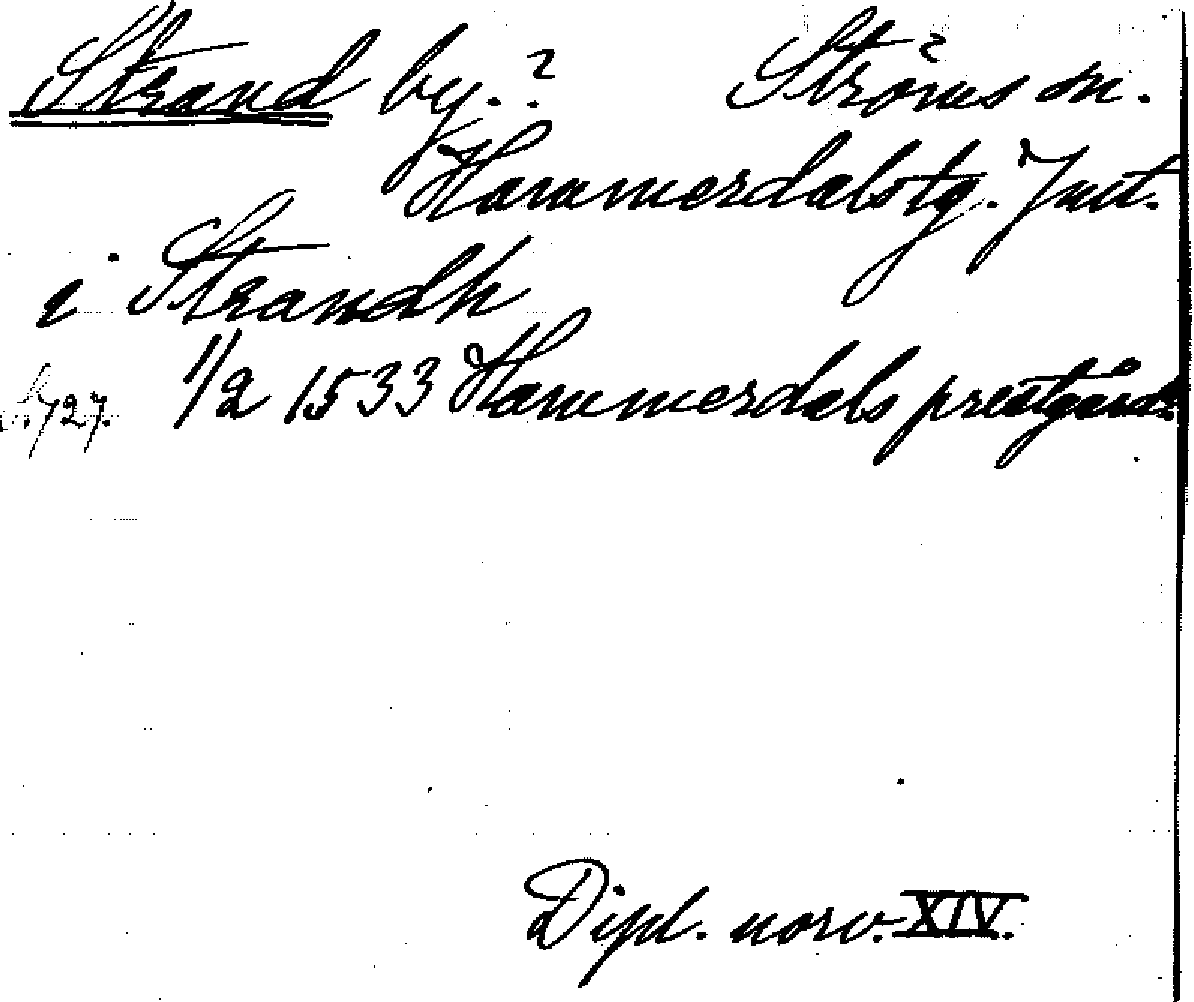 Strand by.? Ströms sn.
Hammerdals tg. Jmt.
i Strandh
1/2 1533 Hammerdals prestgård.
s. 727.
Dipl. norv. XIV.